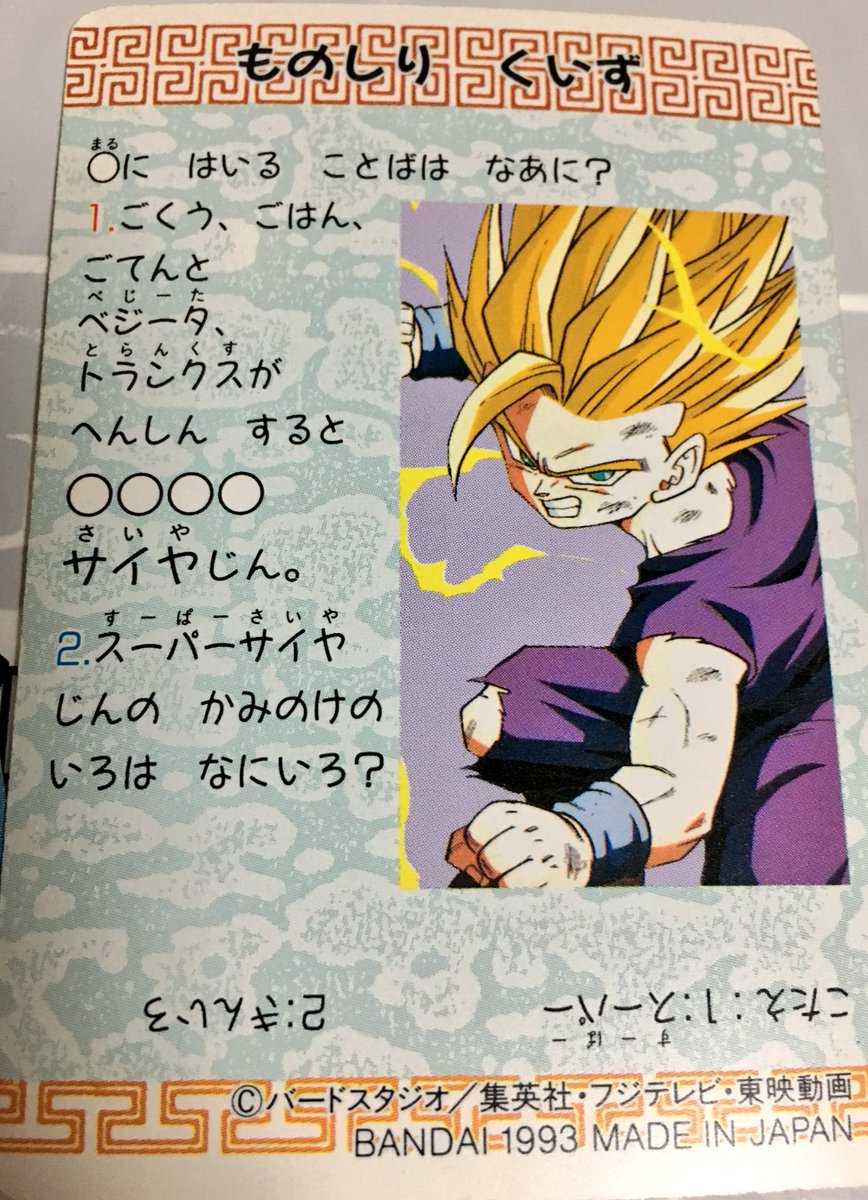 ものしり　くいず
まる
○に　はいる　ことばは　なあに？
1.ごくう、ごはん、
ごてんと
べじーた
ベジータ、
とらんくす
トランクスが
へんしん　すると
○○○○
さいや
サイヤじん。
すーぱーさいや
2.スーパーサイヤ
じんの　かみのけの
いろは　なにいろ？
こたえ：1：スーパー　2：きんいろ
すーぱー
©バードスタジオ／集英社・フジテレビ・東映動画
BANDAI 1993 MADE IN JAPAN